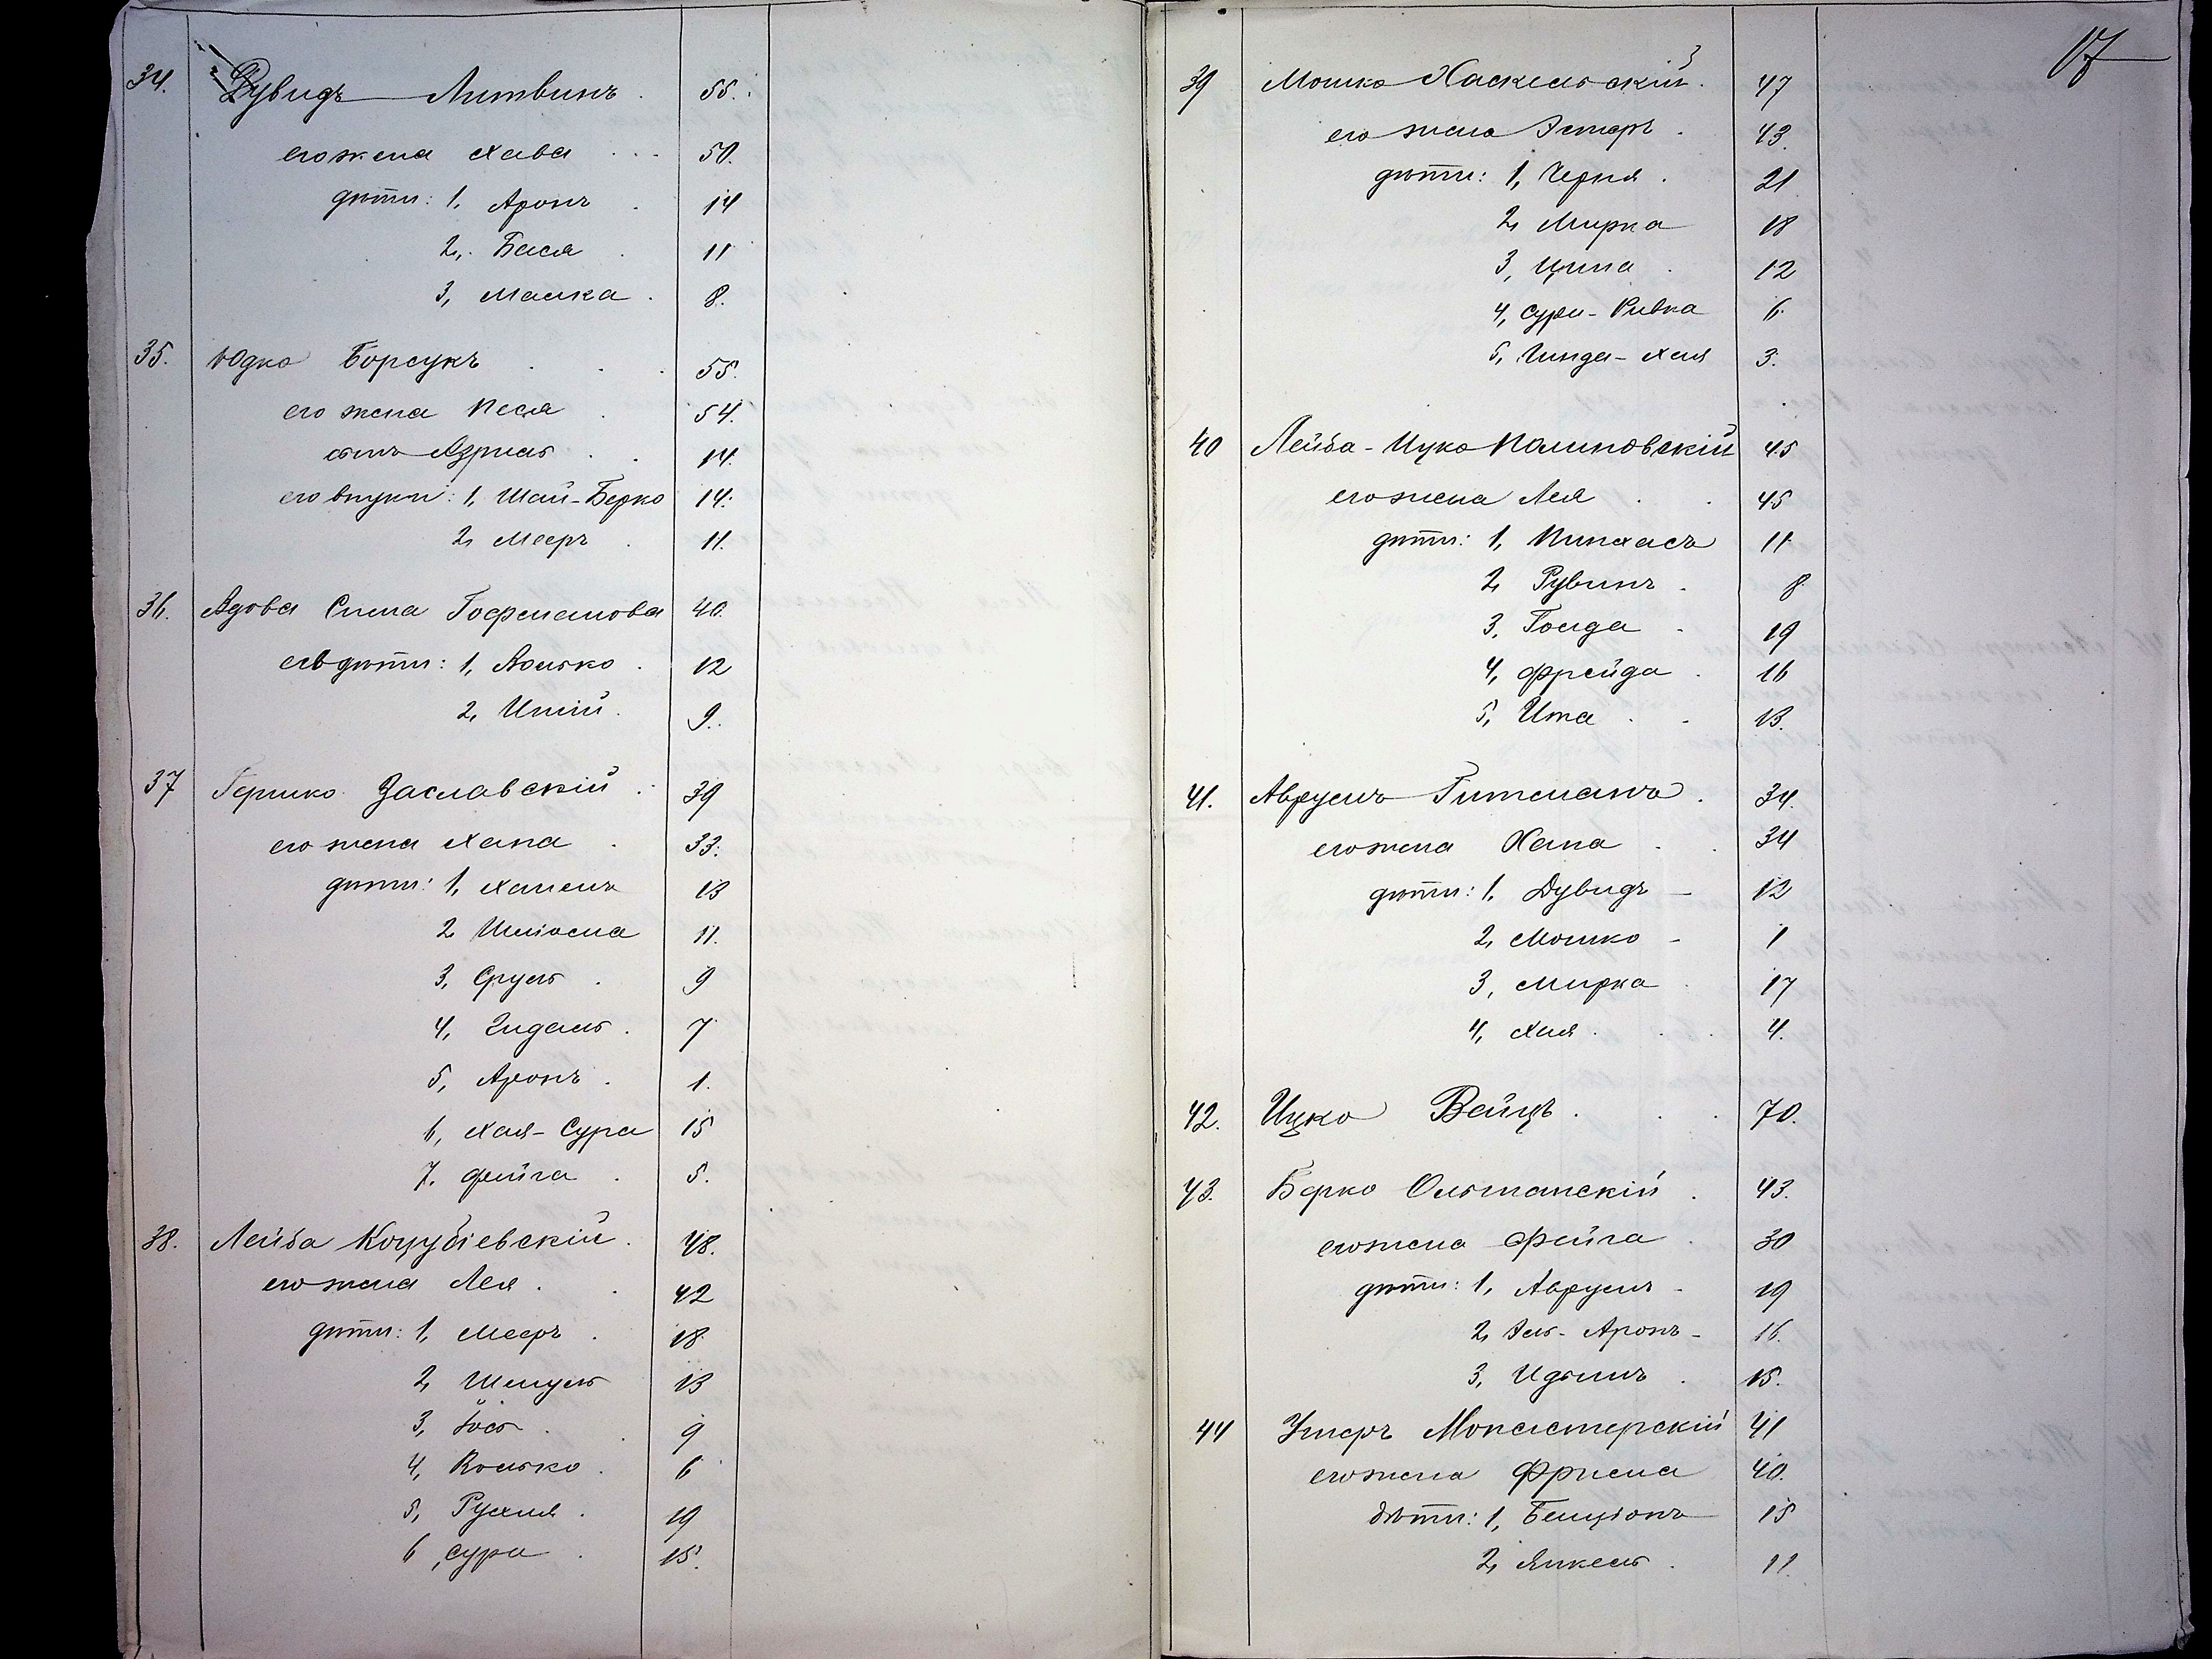 34. Дувидъ Литвинъ . 55.
его жена Хава . . . 50.
дѣти: 1, Аронъ . 14
2, Бася . 11
3, Малка . 8.
35. Юдко Борсукъ . . . 55.
его жена Песя . 54.
сынъ Азриль . . 14.
его внуки: 1, Шай-Берко 14.
2, Мееръ . 11.
36. Вдова Сима Гофманова 40.
ея дѣти: 1, Волько . 12
2, 9.
37 Гершко Заславскій . 39
его жена Хана . 33.
дѣти: 1, 13
2, Шліома 11.
3, Сруль . 9
4, Гидаль . 7
5, Аронъ . 1.
6, Хая-Сура 15
7, Фейга . 5.
38. Лейба Коцубіевскій . 48.
его жена Лея . . 42
дѣти: 1, Мееръ . 18
2, Шмуль 13
3, Іось . . 9
4, Волько . 6
5, Рухля . 19
6, Сура . 15.
17
39 Мошко Хаскельскій . 47
его жена Эстеръ . 43.
дѣти: 1, Черня . 21
2, Мирка 18
3, Ципа . 12
4, Сура-Ривка 6.
5, Хая 3.
40 Лейба-Ицко Калиновскій 45
его жена Лея . . 45
дѣти: 1, Пинхасъ 11
2, Рувинъ . 8
3, Голда . 19
4, Фрейда . 16
5, Ита . . 13.
41. Аврумъ Гитманъ . 34.
его жена Хана . . 34
дѣти: 1, Дувидъ 12
2, Мошко - 1
3, Мирка . 17
4, Хая . . . 4.
42. Ицко Вейцъ . . . 70.
43. Берко Ольшанскій . 43.
его жена Фейга . 30
дѣти: 1, Аврумъ - 19
2, Эль-Аронъ - 16.
3, 15.
44 Ушеръ Монастерскій 41
его жена Фрима 40.
дѣти: 1, Бенціонъ 15
2, Янкель . 11.